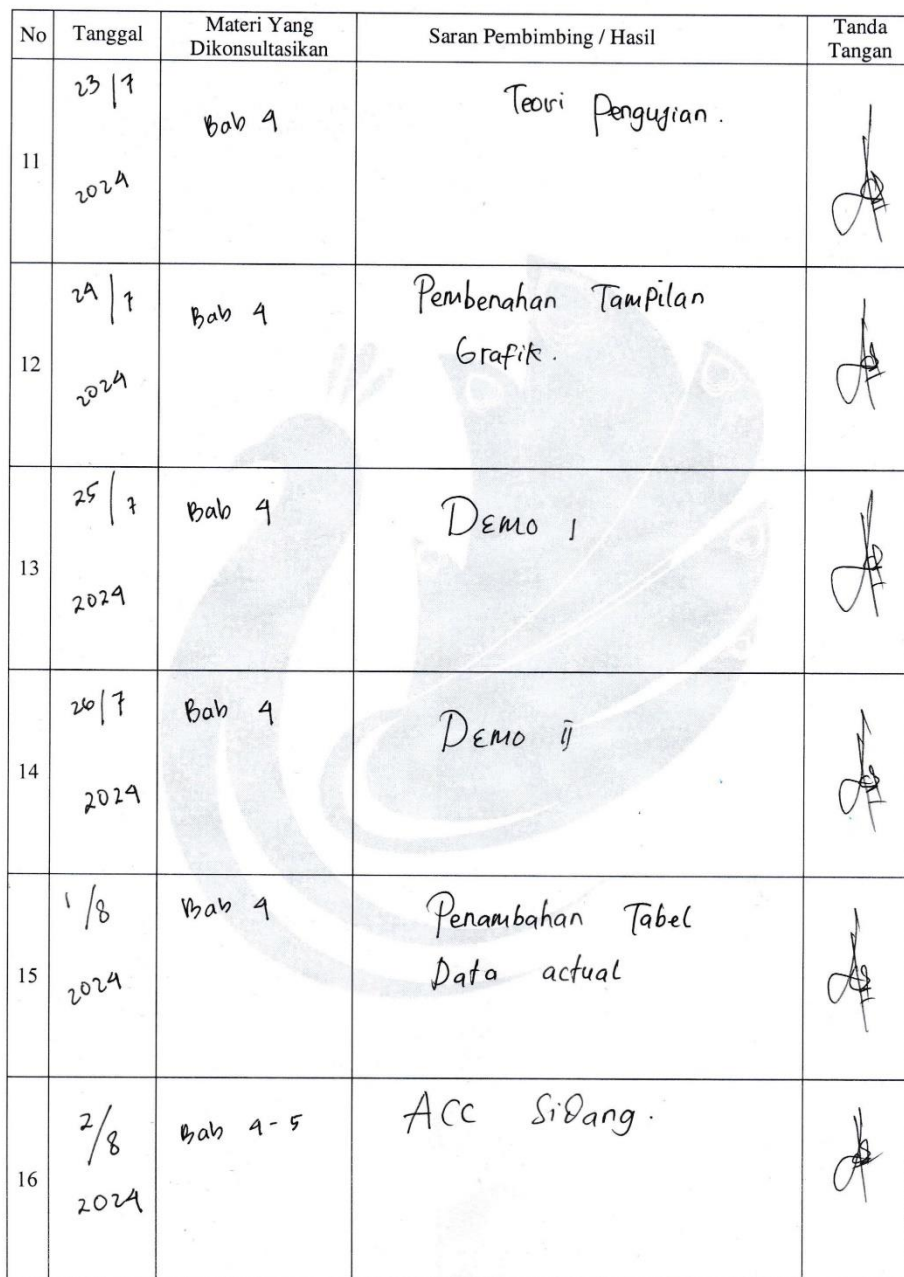 No Tanggal Materi Yang Dikonsultasikan Saran Pembimbing / Hasil Tanda Tangan
11 23/7 2024 Bab 4 Teori Pengujian.
12 24/7 2024 Bab 4 Pembenahan Tampilan Grafik.
13 25/7 2024 Bab 4 Demo I
14 26/7 2024 Bab 4 Demo II
15 1/8 2024 Bab 4 Penambahan Tabel Data actual
16 2/8 2024 Bab 4-5 ACC Sidang.